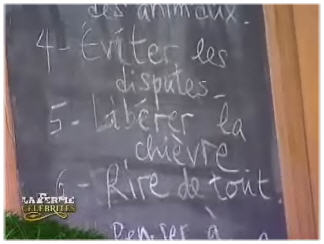 des animaux.
4 - Éviter les
disputes_
5 - Libérer la
chièvre
6 - Rire de tout.
Penser à
LA FERME
CELEBRITES